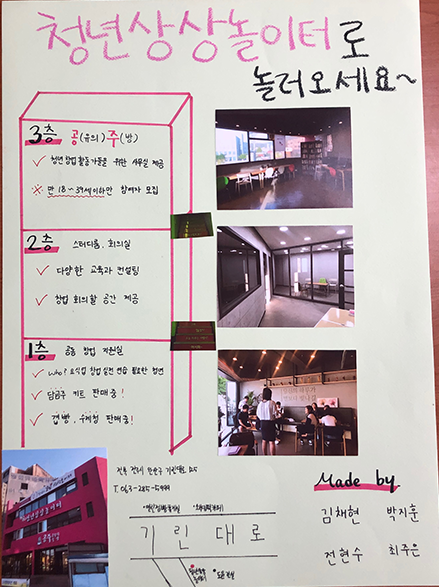 청년상상놀이터로
놀러오세요~
3층 공(유의)주(방)
✓ 청년 창업 활동가들을 위한 사무실 제공
※ 만 18~39세이하만 참여자 모집
2층 스터디룸, 회의실
✓ 다양한 교육과 컨설팅
✓ 창업 회의할 공간 제공
1층 공동 창업 지원실
✓ who? 요식업 창업 실전 연습 필요한 청년
✓ 담금주 키트 판매중!
✓ 컵빵, 수제청 판매중!
청년상상놀이터
전북 전주시 완산구 기린대로
T. 063-
기린대로
Made by
김채현 박지훈
전현수 최주은